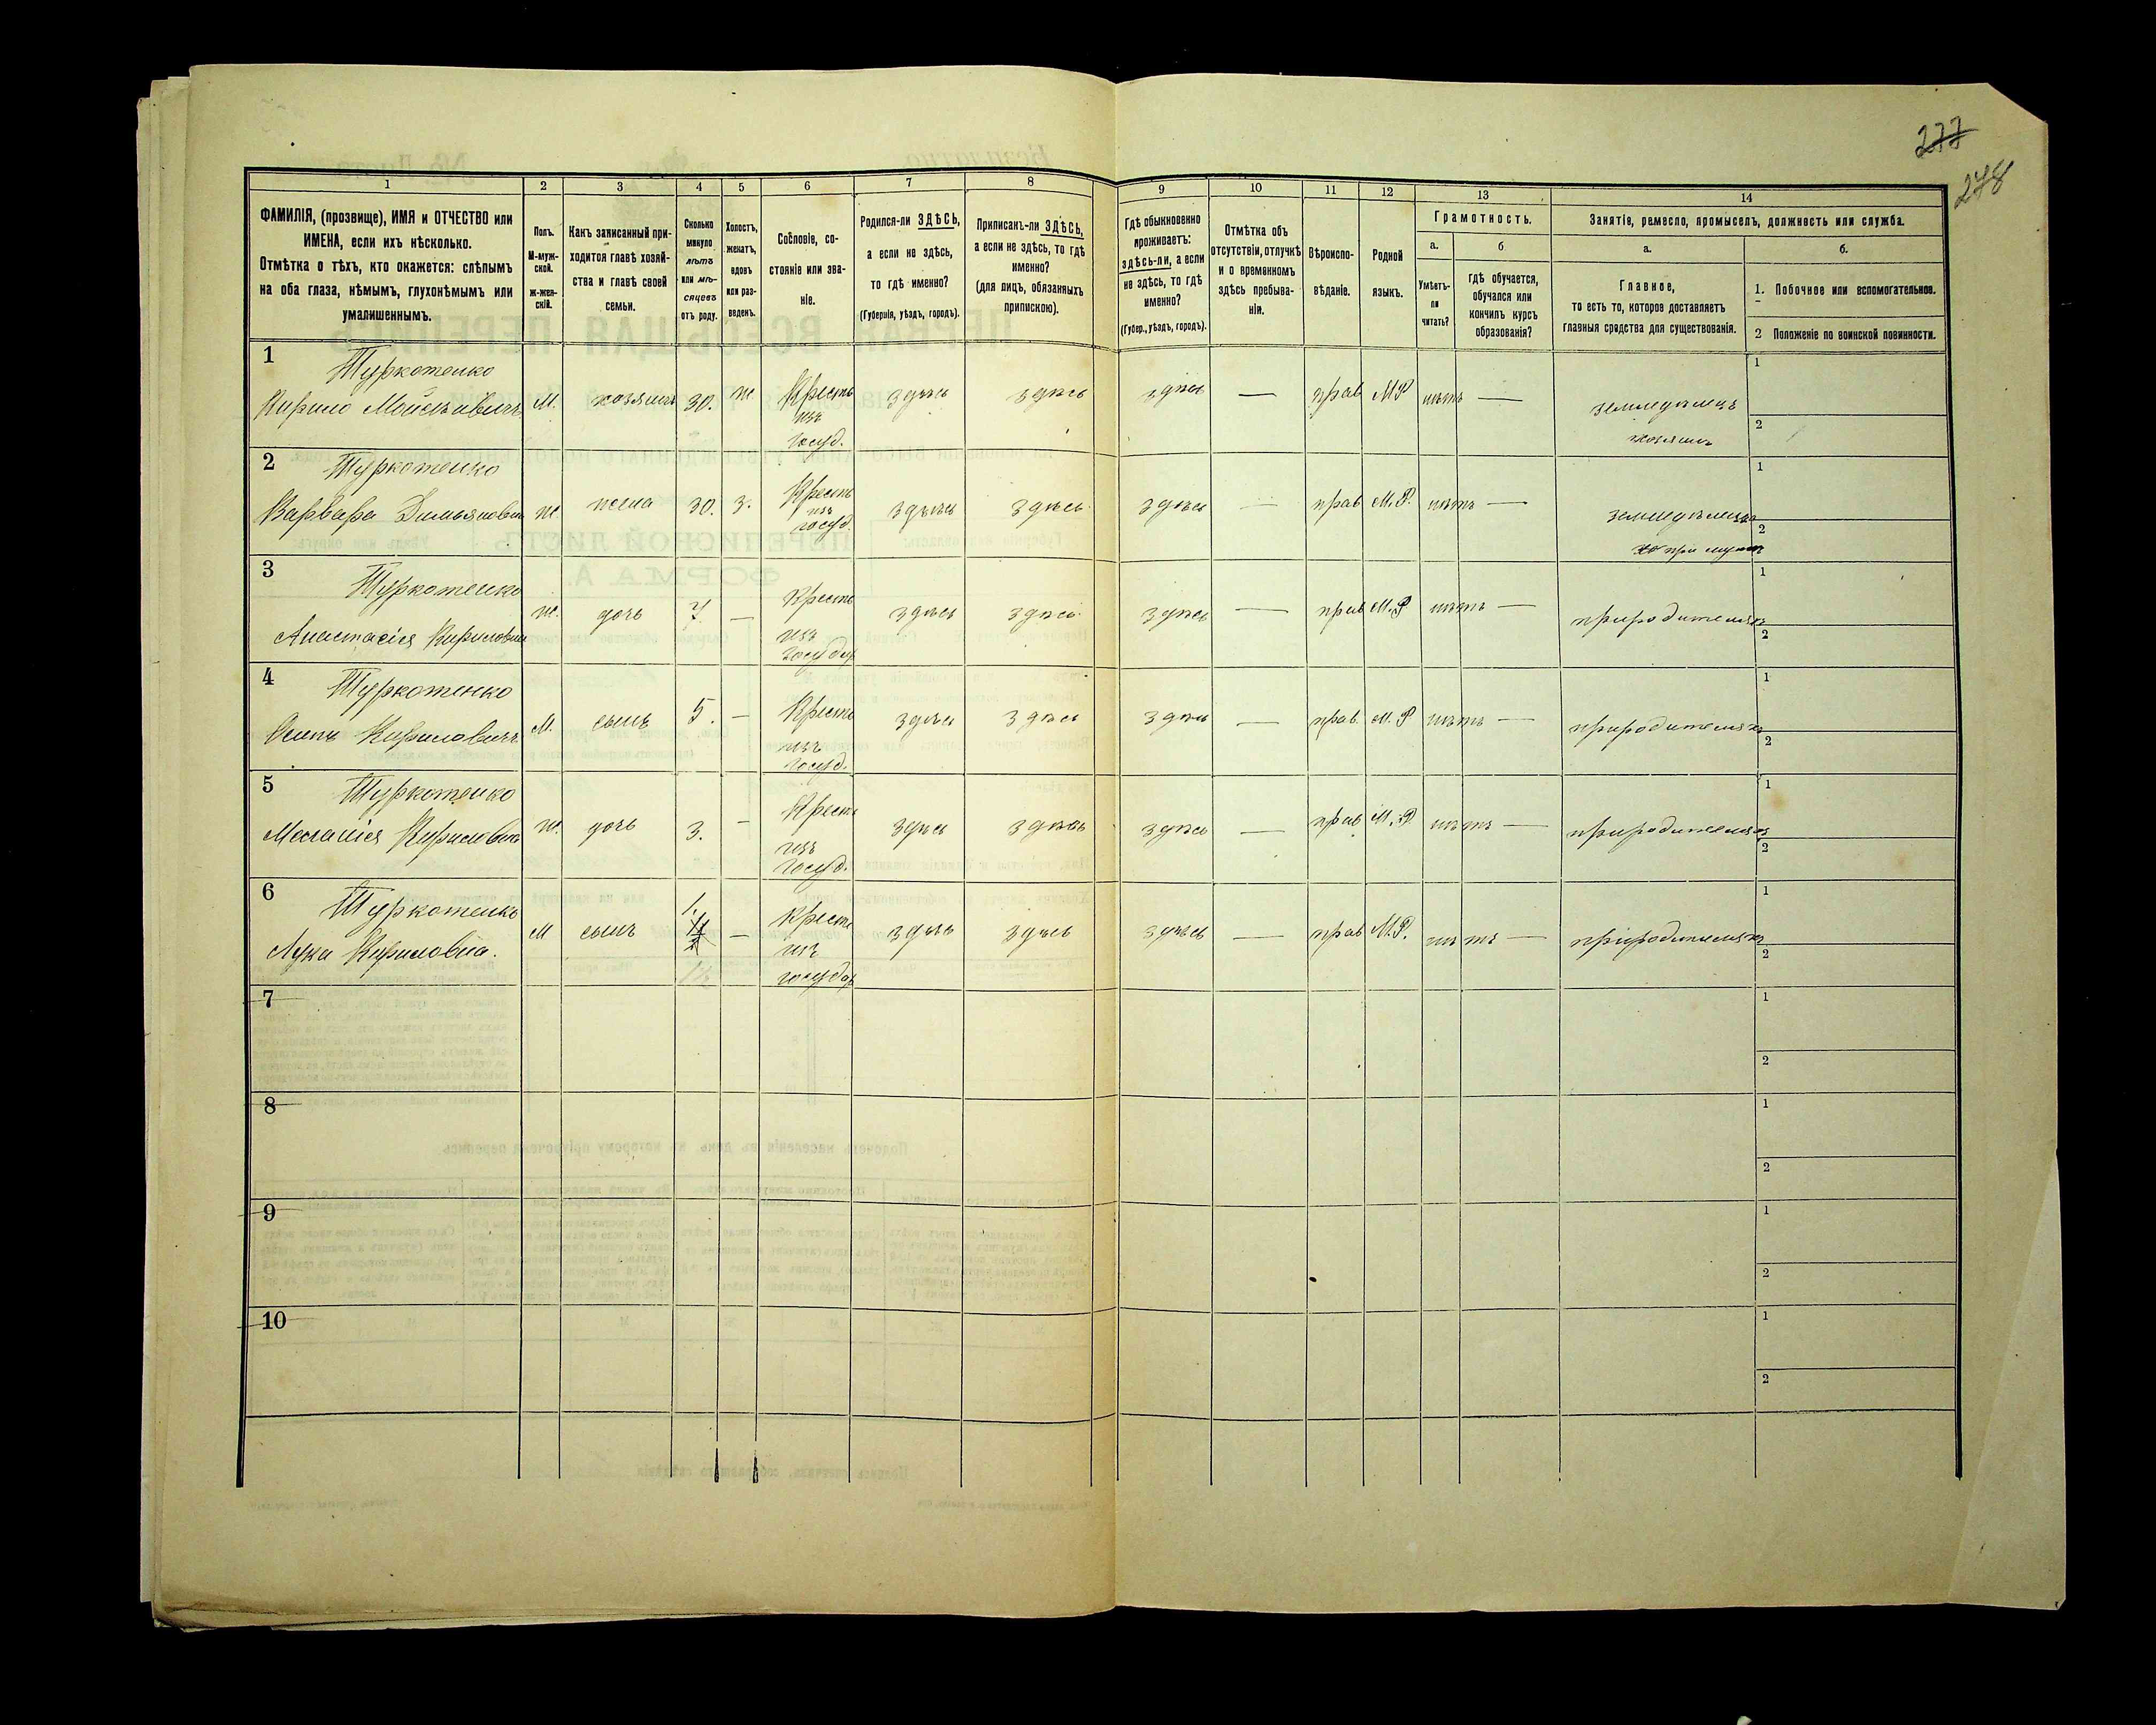 277
278
1
2
3
4
5
6
7
8
9
10
11
12
13
14
ФАМИЛІЯ, (прозвище), ИМЯ и ОТЧЕСТВО или
ИМЕНА, если ихъ нѣсколько.
Отмѣтка о тѣхъ, кто окажется: слѣпымъ
на оба глаза, нѣмымъ, глухонѣмымъ или
умалишеннымъ.
Полъ.
М-муж-
ской.
ж-жен-
скій.
Какъ записанный при-
ходится главѣ хозяй-
ства и главѣ своей
семьи.
Сколько
минуло
лѣтъ
или мѣ-
сяцевъ
отъ роду.
Холостъ,
женатъ,
вдовъ
или раз-
веденъ.
Сословіе, со-
стояніе или зва-
ніе.
Родился-ли ЗДѢСЬ,
а если не здѣсь,
то гдѣ именно?
(Губернія, уѣздъ, городъ).
Приписанъ-ли ЗДѢСЬ,
а если не здѣсь, то гдѣ
именно?
(для лицъ, обязанныхъ
припискою).
Гдѣ обыкновенно
проживаетъ:
здѣсь-ли, а если
не здѣсь, то гдѣ
именно?
(Губер., уѣздъ, городъ).
Отмѣтка объ
отсутствіи, отлучкѣ
и о временномъ
здѣсь пребыва-
ніи.
Вѣроиспо-
вѣданіе.
Родной
языкъ.
Грамотность.
а.
Умѣетъ-
ли
читать?
б
Гдѣ обучается,
обучался или
кончилъ курсъ
образованія?
Занятіе, ремесло, промыселъ, должность или служба.
а.
Главное,
то есть то, которое доставляетъ
главныя средства для существованія.
б.
1. Побочное или вспомогательное.
2 Положеніе по воинской повинности.
1
Туркотенко
Кирило Мойсѣивичъ М. хозяинъ 30. ж Крестъ здѣсь здѣсь здѣсь — прав М Р нѣтъ — земледѣлецъ
изъ
госуд.
хозяинъ
1
2
2
Туркотенко
Варвара Димьяновна ж жена 30. З. Крестъ здѣсь здѣсь здѣсь — прав М. Р. нѣтъ — земледѣлецъ
изъ
госуд.
при мужѣ
1
2
3
Туркотенко
Анастасія Кириловна ж. дочь 7. — Крестъ здѣсь здѣсь здѣсь — прав М. Р нѣтъ — природителяхъ
изъ
государ
1
2
4
Туркотенко
Осипъ Кириловичъ М. сынъ 5. — Крестъ здѣсь здѣсь здѣсь — прав. М. Р нѣтъ — природителяхъ
изъ
госуд.
1
2
5
Туркотенко
Меланія Кириловна ж. дочь 3. — Крестъ здѣсь здѣсь здѣсь — прав М. Р. нѣтъ — природителяхъ
изъ
госуд.
1
2
6
Туркотенко
Лука Кириловна. М сынъ 1. — Крестъ здѣсь здѣсь здѣсь — прав М. Р. нѣтъ — пріродителяхъ
изъ
государ
1
2
7
1
2
8
1
2
9
1
2
10
1
2